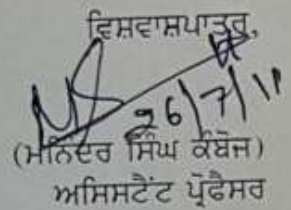 ਵਿਸ਼ਵਾਸ਼ਪਾਤਰ,
26/7/11
(ਮਨਿੰਦਰ ਸਿੰਘ ਕੰਬੋਜ)
ਅਸਿਸਟੈਂਟ ਪ੍ਰੋਫੈਸਰ